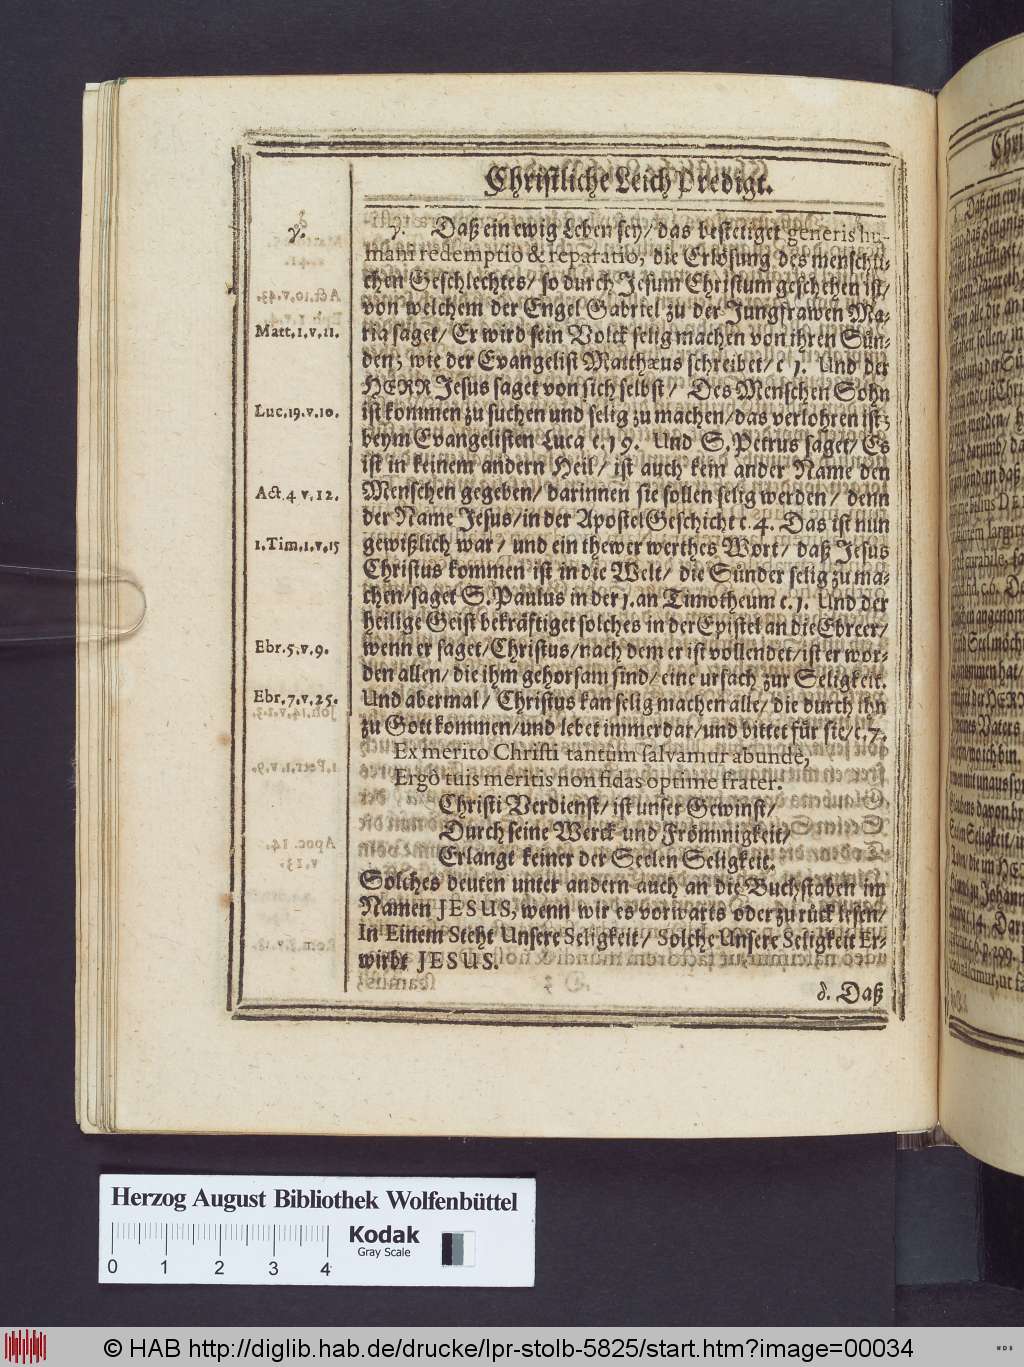 Christliche Leich Predigt.
7.
7. Daß ein ewig Leben sey/ das bestetiget generis hu-
mani redemptio & reparatio, die Erlösung des menschli-
chen Geschlechtes/ so durch Jesum Christum geschehen ist/
von welchem der Engel Gabriel zu der Jungfrawen Ma-
Matt. 1. v. 11.
ria saget/ Er wird sein Volck selig machen von ihren Sün-
den; wie der Evangelist Matthæus schreibet/ c 1. Und der
HERR Jesus saget von sich selbst/ Des Menschen Sohn
Luc. 19. v. 10.
ist kommen zu suchen und selig zu machen/ das verlohren ist;
beym Evangelisten Luca c. 19. Und S. Petrus saget/ Es
ist in keinem andern Heil/ ist auch kein ander Name den
Act. 4 v. 12.
Menschen gegeben/ darinnen sie sollen selig werden/ denn
der Name Jesus/ in der Apostel Geschicht c. 4. Das ist nun
1. Tim. 1. v. 15
gewißlich war/ und ein thewer werthes Wort/ daß Jesus
Christus kommen ist in die Welt/ die Sünder selig zu ma-
chen/ saget S. Paulus in der 1. an Timotheum c. 1. Und der
heilige Geist bekräftiget solches in der Epistel an die Ebreer/
Ebr. 5. v. 9.
wenn er saget/ Christus/ nach dem er ist vollendet/ ist er wor-
den allen/ die ihm gehorsam sind/ eine ursach zur Seligkeit.
Ebr. 7. v. 25.
Und abermal/ Christus kan selig machen alle/ die durch ihn
zu Gott kommen/ und lebet immerdar/ und bittet für sie/ c. 7.
Ex merito Christi tantum salvamur abundè,
Ergò tuis meritis non fidas optime frater.
Christi Verdienst/ ist unser Gewinst/
Durch seine Werck und Frömmigkeit/
Erlangt keiner der Seelen Seligkeit.
Solches deuten unter andern auch an die Buchstaben im
Namen JESUS, wenn wir es vorwarts oder zu rück lesen/
In Einem Steht Unsere Seligkeit/ Solche Unsere Seligkeit Er-
wirbt JESUS.
8. Daß
Herzog August Bibliothek Wolfenbüttel
Kodak
Gray Scale
0 1 2 3 4
© HAB http://diglib.hab.de/drucke/lpr-stolb-5825/start.htm?image=00034